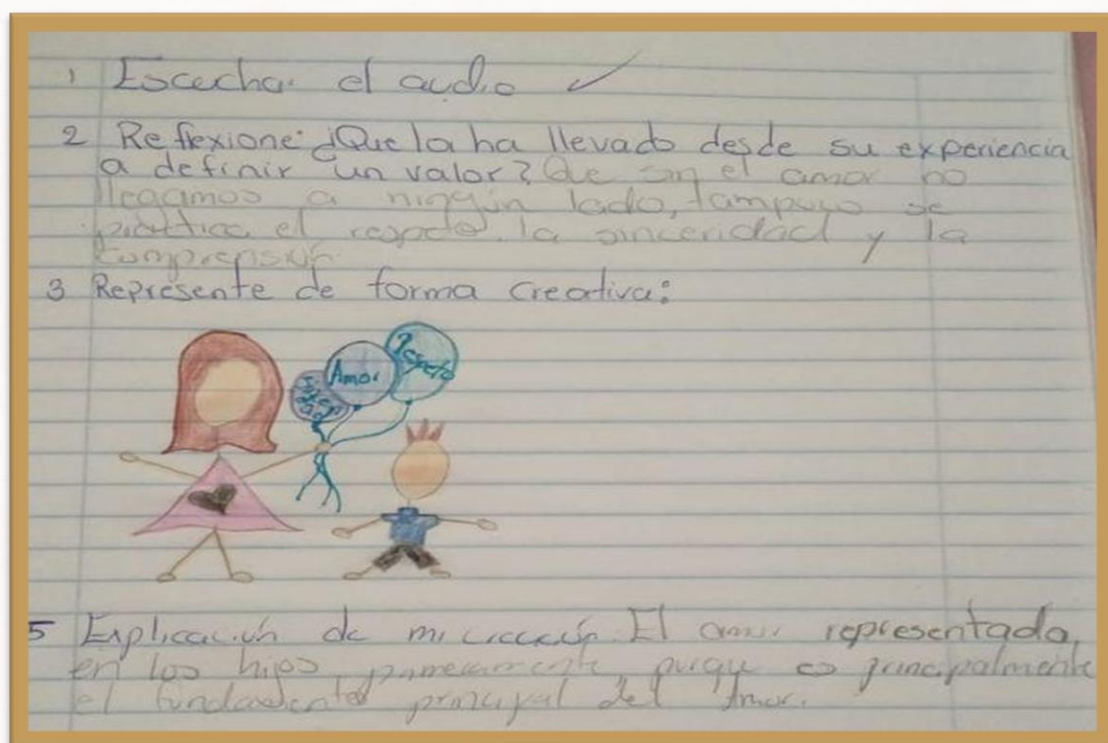 1 Escucha el audio ✓
2 Reflexione: ¿Que la ha llevado desde su experiencia
a definir un valor? Que sin el amor no
llegamos a ningún lado, tampoco se
práctica el respeto, la sinceridad y la
Comprensión.
3 Represente de forma Creativa:
Respeto
Amor
Sinceridad
5 Explicación de mi creación El amor representado
en los hijos primeramente porque es principalmente
el fundamento principal del Amor.